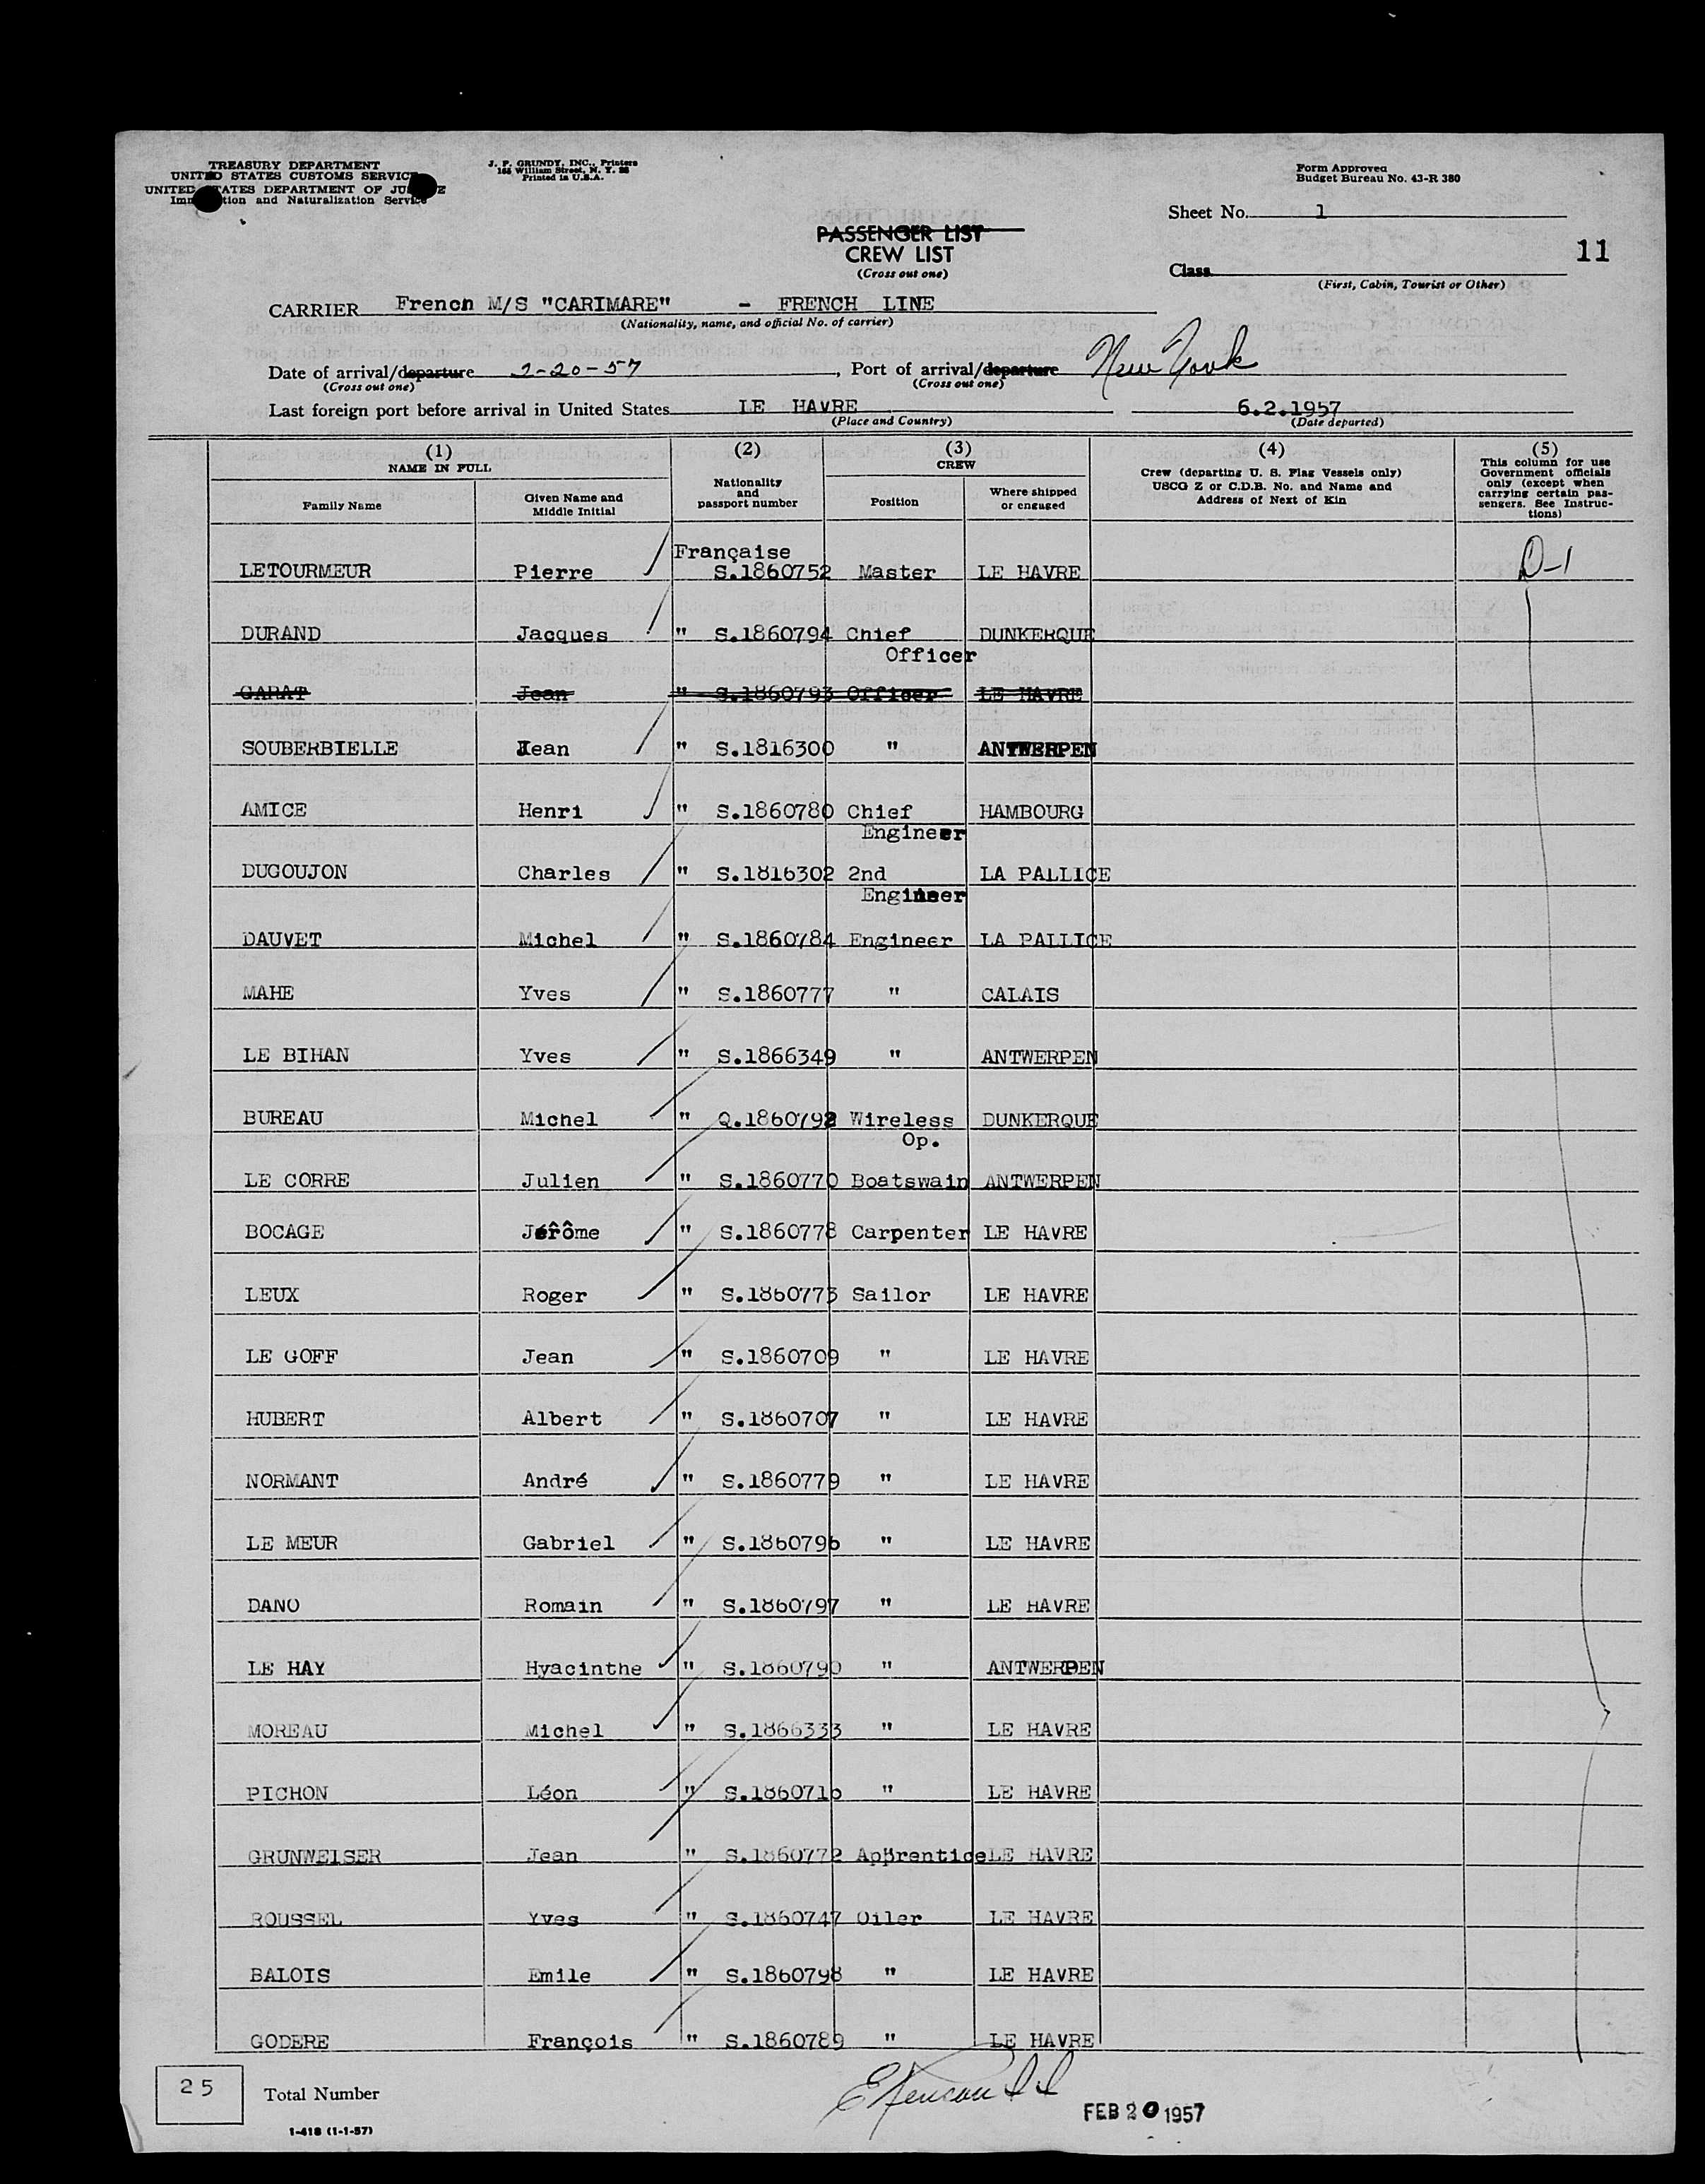 TREASURY DEPARTMENT
UNITED STATES CUSTOMS SERVICE
UNITED STATES DEPARTMENT OF JUSTICE
Immigration and Naturalization Service
J. F. GRUNDY, INC., Printers
Printed in U.S.A.
Form Approved
Budget Bureau No. 43-R 380
Sheet No. 1
PASSENGER LIST
CREW LIST
(Cross out one)
11
Class
(First, Cabin, Tourist or Other)
CARRIER French M/S "CARIMARE" - FRENCH LINE
(Nationality, name, and official No. of carrier)
Date of arrival/departure 2-20-57, Port of arrival/departure New York
(Cross out one) (Cross out one)
Last foreign port before arrival in United States LE HAVRE 6.2.1957
(Place and Country) (Date departed)
(1) (2) (3) (4) (5)
NAME IN FULL Nationality and passport number CREW Crew (departing U. S. Flag Vessels only) USCG Z or C.D.B. No. and Name and Address of Next of Kin This column for use Government officials only (except when carrying certain passengers. See Instructions)
Family Name Given Name and Middle Initial Position Where shipped or engaged
LETOURMEUR Pierre Française S.1860752 Master LE HAVRE D-1
DURAND Jacques " S.1860794 Chief Officer DUNKERQUE
GARAT Jean " S.1860793 Officer LE HAVRE
SOUBERBIELLE Jean " S.1816300 " ANTWERPEN
AMICE Henri " S.1860780 Chief Engineer HAMBOURG
DUGOUJON Charles " S.1816302 2nd Engineer LA PALLICE
DAUVET Michel " S.1860784 Engineer LA PALLICE
MAHE Yves " S.1860777 " CALAIS
LE BIHAN Yves " S.1866349 " ANTWERPEN
BUREAU Michel " Wireless Op. DUNKERQUE
LE CORRE Julien " S.1860770 Boatswain ANTWERPEN
BOCAGE Jérôme " S.1860778 Carpenter LE HAVRE
LEUX Roger " S.1860773 Sailor LE HAVRE
LE GOFF Jean " S.1860709 " LE HAVRE
HUBERT Albert " S.1860707 " LE HAVRE
NORMANT André " S.1860779 " LE HAVRE
LE MEUR Gabriel " S.1860796 " LE HAVRE
DANO Romain " S.1860797 " LE HAVRE
LE HAY Hyacinthe " S.1860790 " ANTWERPEN
MOREAU Michel " S.1866333 " LE HAVRE
PICHON Léon " S.1860716 " LE HAVRE
GRUNWEISER Jean " S.1860772 Apprentice LE HAVRE
ROUSSEL Yves " S.1860747 Oiler LE HAVRE
BALOIS Emile " S.1860798 " LE HAVRE
GODERE François " S.1860789 " LE HAVRE
25 Total Number
FEB 20 1957
I-418 (1-1-57)